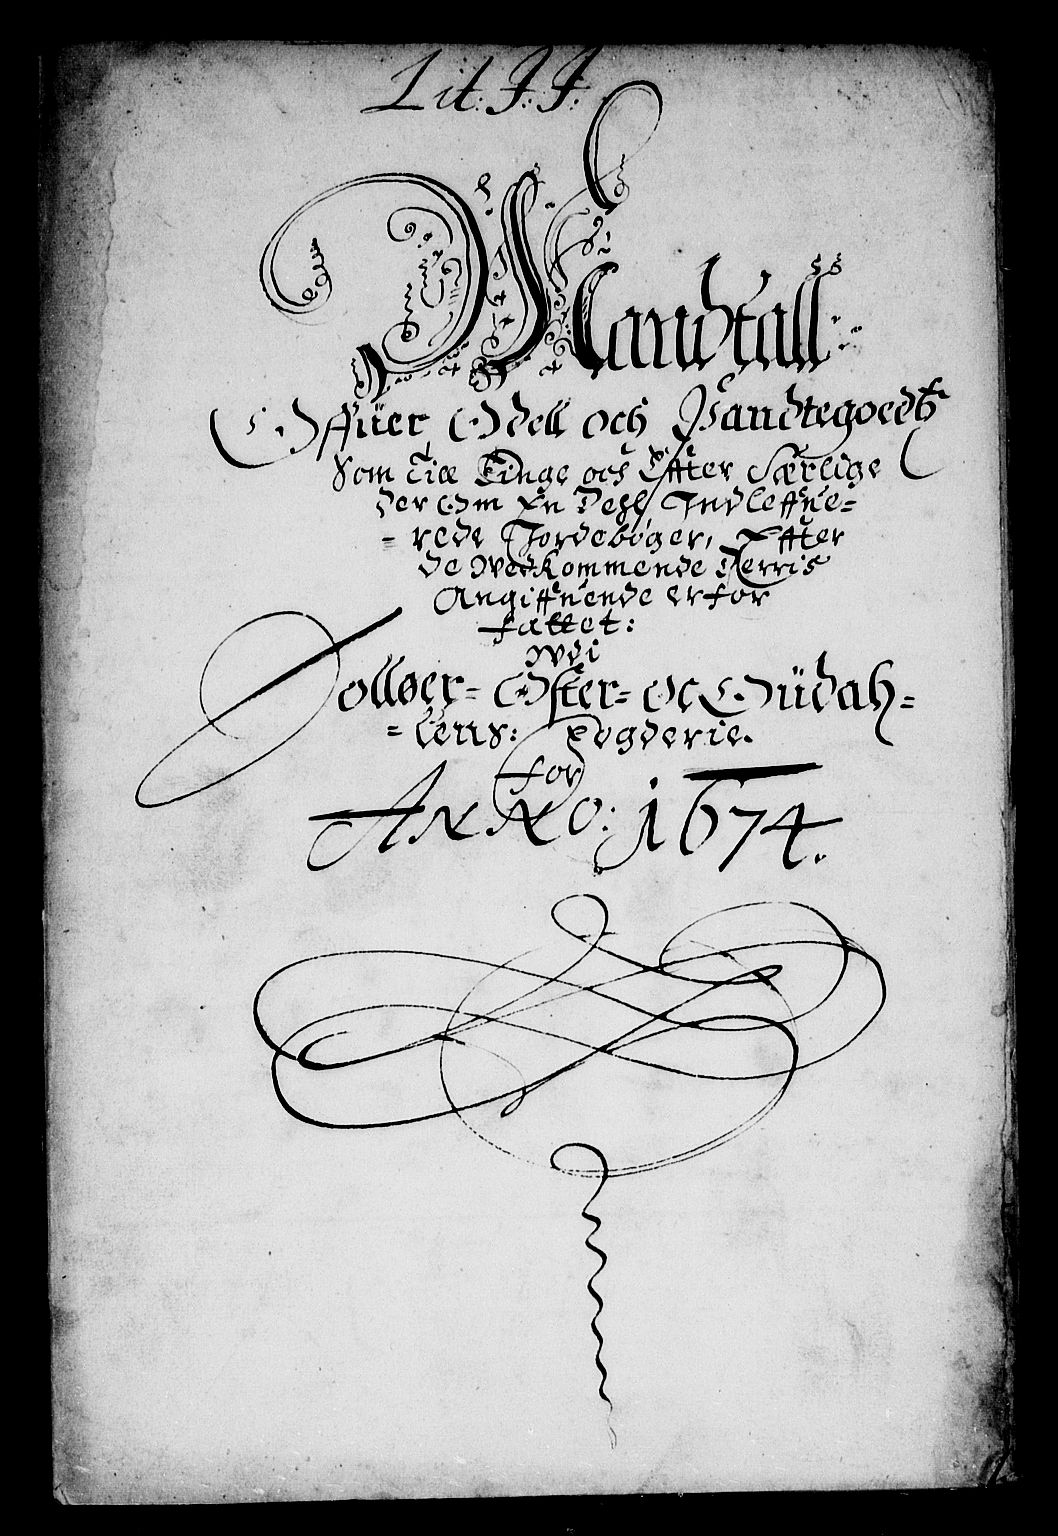 Lit: J: J:
Mandtall
Offuer Odell och Pandtegoedtz
Som till Tinge och Effter Særlige
der Om En Dehl Indleffue=
= rede Jordebøger, Effter
de wedkommende Herris
Angiffuende erfor
fattet:
wdi
Solløer= Øster= Oc Oüdah=
= lens: Fogderie.
for
Anno: 1674.